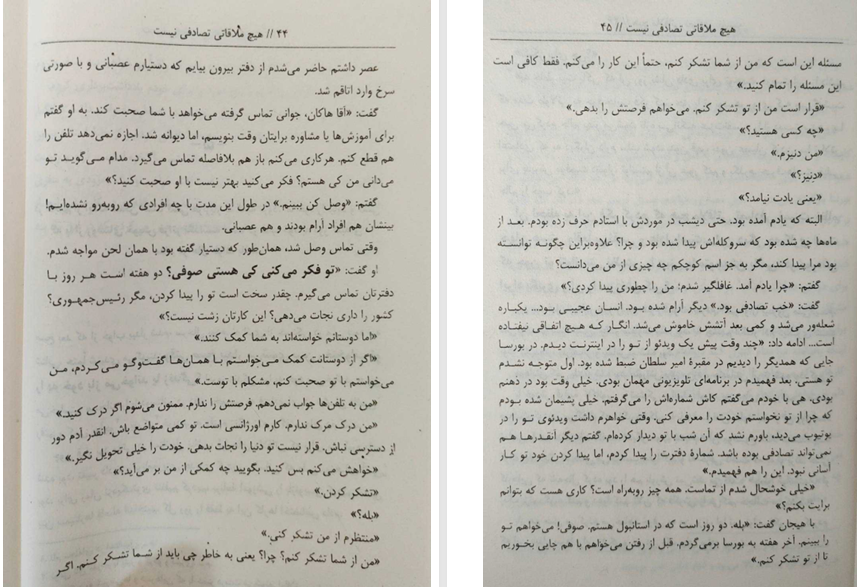 ۴۴ // هیچ ملاقاتی تصادفی نیست
عصر داشتم حاضر می‌شدم از دفتر بیرون بیایم که دستیارم عصبانی و با صورتی
سرخ وارد اتاقم شد.
گفت: «آقا هاکان، جوانی تماس گرفته می‌خواهد با شما صحبت کند. به او گفتم
برای آموزش‌ها یا مشاوره برایتان وقت بنویسم، اما دیوانه شد. اجازه نمی‌دهد تلفن را
هم قطع کنم. هرکاری می‌کنم باز هم بلافاصله تماس می‌گیرد. مدام می‌گوید تو
می‌دانی من کی هستم؟ فکر می‌کنید بهتر نیست با او صحبت کنید؟»
گفتم: «وصل کن ببینم.» در طول این مدت با چه افرادی که روبه‌رو نشده‌ایم!
بینشان هم افراد آرام بودند و هم عصبانی.
وقتی تماس وصل شد، همان‌طور که دستیار گفته بود با همان لحن مواجه شدم.
او گفت: «تو فکر می‌کنی کی هستی صوفی؟ دو هفته است هر روز با
دفترتان تماس می‌گیرم. چقدر سخت است تو را پیدا کردن، مگر رئیس‌جمهوری؟
کشور را داری نجات می‌دهی؟ این کارتان زشت نیست؟»
«اما دوستانم خواسته‌اند به شما کمک کنند.»
«اگر از دوستانت کمک می‌خواستم با همان‌ها گفت‌وگو می‌کردم، من
می‌خواستم با تو صحبت کنم، مشکلم با توست.»
«من به تلفن‌ها جواب نمی‌دهم. فرصتش را ندارم. ممنون می‌شوم اگر درک کنید.»
«من درک مرک ندارم. کارم اورژانسی است. تو کمی متواضع باش. انقدر آدم دور
از دسترسی نباش. قرار نیست تو دنیا را نجات بدهی. خودت را خیلی تحویل نگیر.»
«خواهش می‌کنم بس کنید. بگویید چه کمکی از من بر می‌آید؟»
«تشکر کردن.»
«بله؟»
«منتظرم از من تشکر کنی.»
«من از شما تشکر کنم؟ چرا؟ یعنی به خاطر چی باید از شما تشکر کنم. اگر
هیچ ملاقاتی تصادفی نیست // ۴۵
مسئله این است که من از شما تشکر کنم، حتماً این کار را می‌کنم. فقط کافی است
این مسئله را تمام کنید.»
«قرار است من از تو تشکر کنم. می‌خواهم فرصتش را بدهی.»
«چه کسی هستید؟»
«من دنیزم.»
«دنیز؟»
«یعنی یادت نیامد؟»
البته که یادم آمده بود. حتی دیشب در موردش با استادم حرف زده بودم. بعد از
ماه‌ها چه شده بود که سروکله‌اش پیدا شده بود و چرا؟ علاوه‌براین چگونه توانسته
بود مرا پیدا کند، مگر به جز اسم کوچکم چه چیزی از من می‌دانست؟
گفتم: «چرا یادم آمد. غافلگیر شدم؛ من را چطوری پیدا کردی؟»
گفت: «خب تصادفی بود.» دیگر آرام شده بود. انسان عجیبی بود... یکباره
شعله‌ور می‌شد و کمی بعد آتشش خاموش می‌شد. انگار که هیچ اتفاقی نیفتاده
است... ادامه داد: «چند وقت پیش یک ویدئو از تو را در اینترنت دیدم. در بورسا
جایی که همدیگر را دیدیم در مقبرهٔ امیر سلطان ضبط شده بود. اول متوجه نشدم
تو هستی، بعد فهمیدم در برنامه‌ای تلویزیونی مهمان بودی. خیلی وقت بود در ذهنم
بودی، هی با خودم می‌گفتم کاش شماره‌اش را می‌گرفتم. خیلی پشیمان شده بودم
که چرا از تو نخواستم خودت را معرفی کنی. وقتی خواهرم داشت ویدئوی تو را در
یوتیوب می‌دید، باورم نشد که آن شب با تو دیدار کرده‌ام. گفتم دیگر آنقدرها هم
نمی‌تواند تصادفی بوده باشد. شمارهٔ دفترت را پیدا کردم، اما پیدا کردن خود تو کار
آسانی نبود. این را هم فهمیدم.»
«خیلی خوشحال شدم از تماست. همه چیز روبه‌راه است؟ کاری هست که بتوانم
برایت بکنم؟»
با هیجان گفت: «بله. دو روز است که در استانبول هستم. صوفی! می‌خواهم تو
را ببینم. آخر هفته به بورسا برمی‌گردم. قبل از رفتن می‌خواهم با هم چایی بخوریم
تا از تو تشکر کنم.»